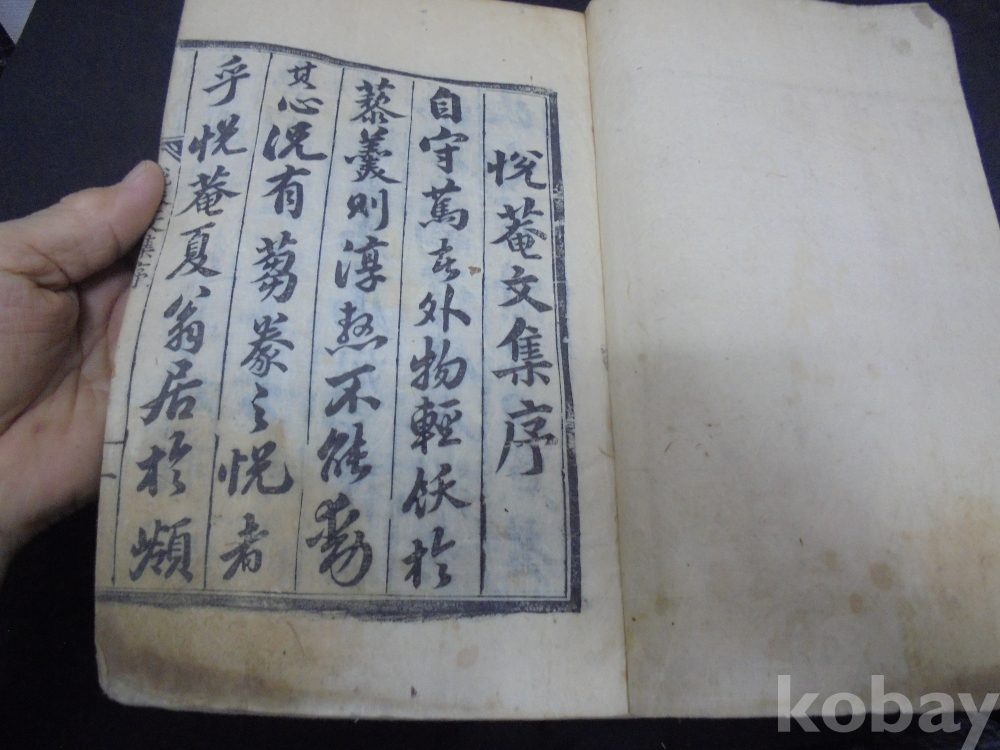 悅菴文集序
自守篤者外物輕飫於
藜羹則淳熬不能動
其心況有芻豢之悅者
乎悅菴夏翁居於嚬
文集序
kobay